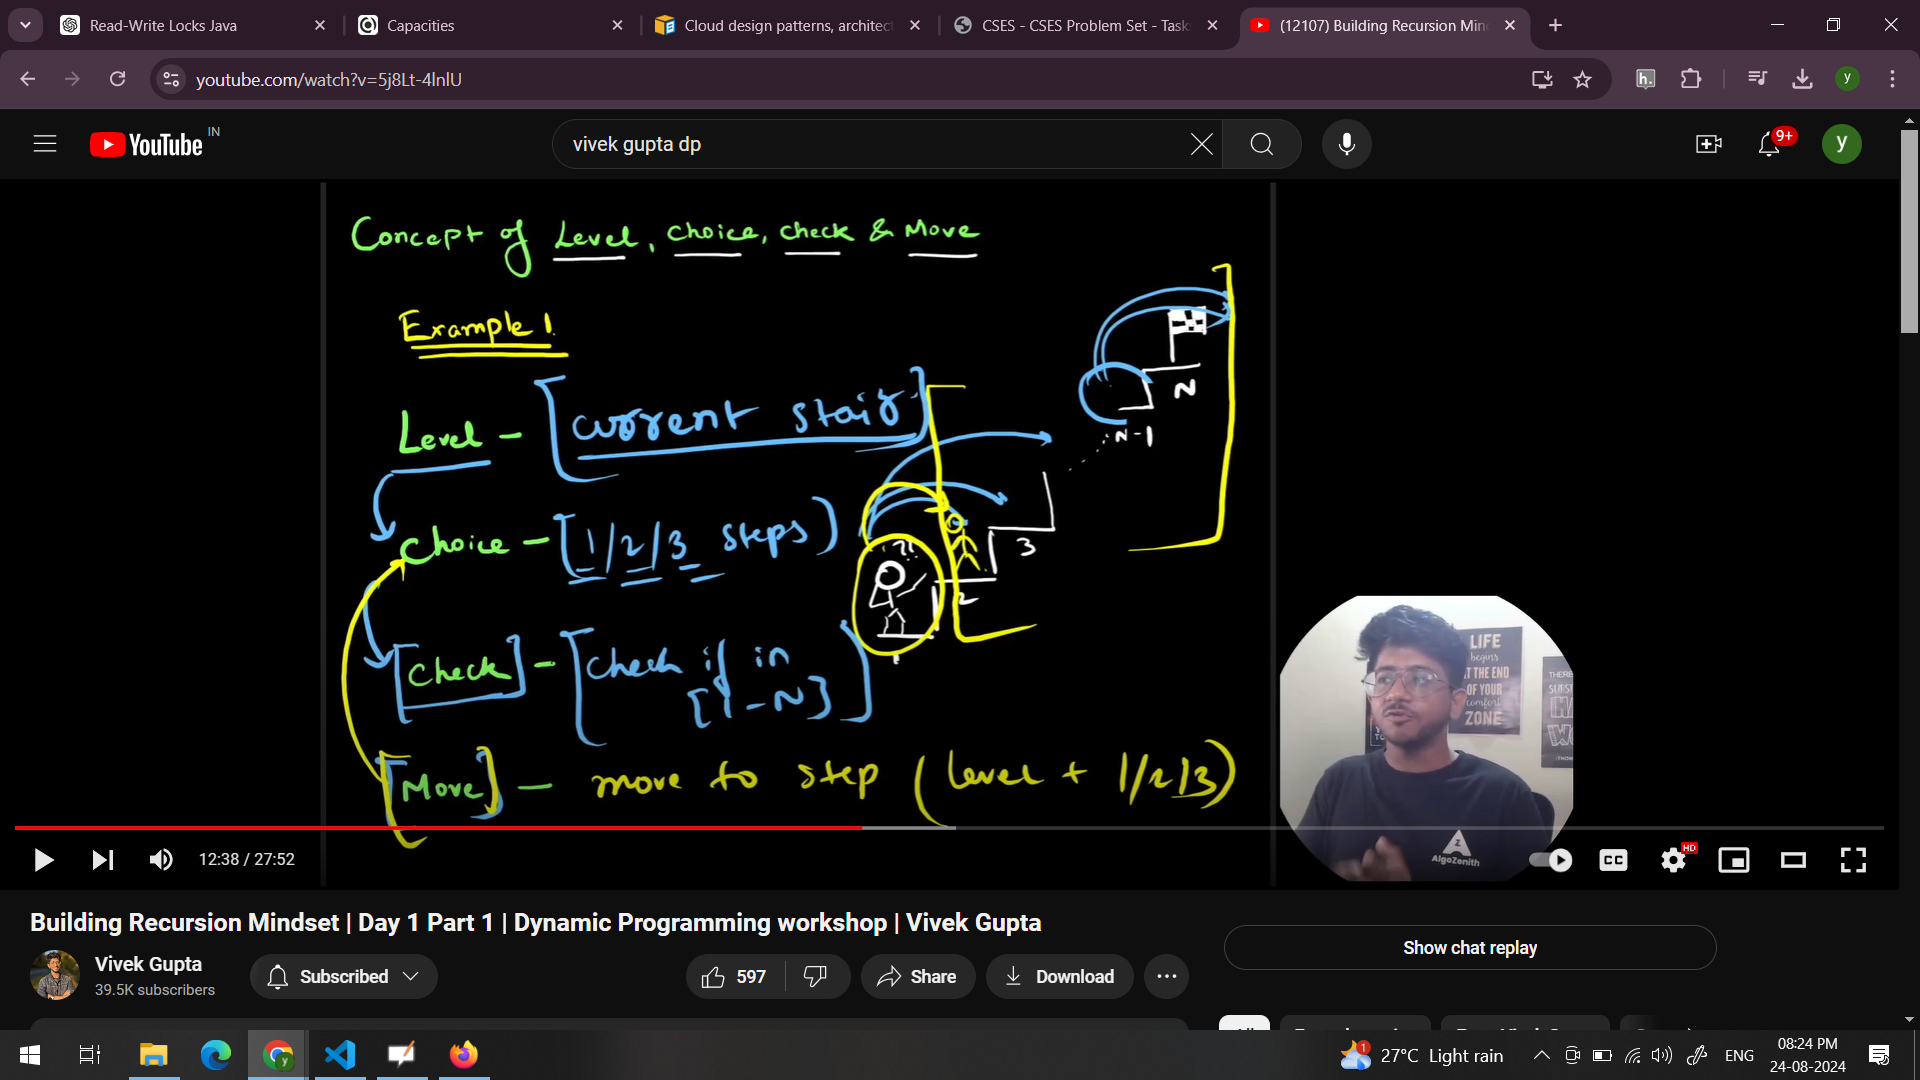 Read-Write Locks Java
Capacities
Cloud design patterns, architect
CSES - CSES Problem Set - Task
(12107) Building Recursion Min
youtube.com/watch?v=5j8Lt-4lnlU
h.
y
YouTube IN
vivek gupta dp
9+
y
Concept of Level, Choice, Check & Move
Example 1.
Level - [current stair]
Choice - [1/2/3 steps)
[Check] - [Check if in
[1-N]]
[Move] - move to step (level + 1/2/3)
1
2
3
N-1
N
LIFE
begins
AT THE END
OF YOUR
comfort
ZONE
AlgoZenith
12:38 / 27:52
CC
HD
Building Recursion Mindset | Day 1 Part 1 | Dynamic Programming workshop | Vivek Gupta
Show chat replay
Vivek Gupta
39.5K subscribers
Subscribed
597
Share
Download
1
27°C Light rain
ENG
08:24 PM
24-08-2024